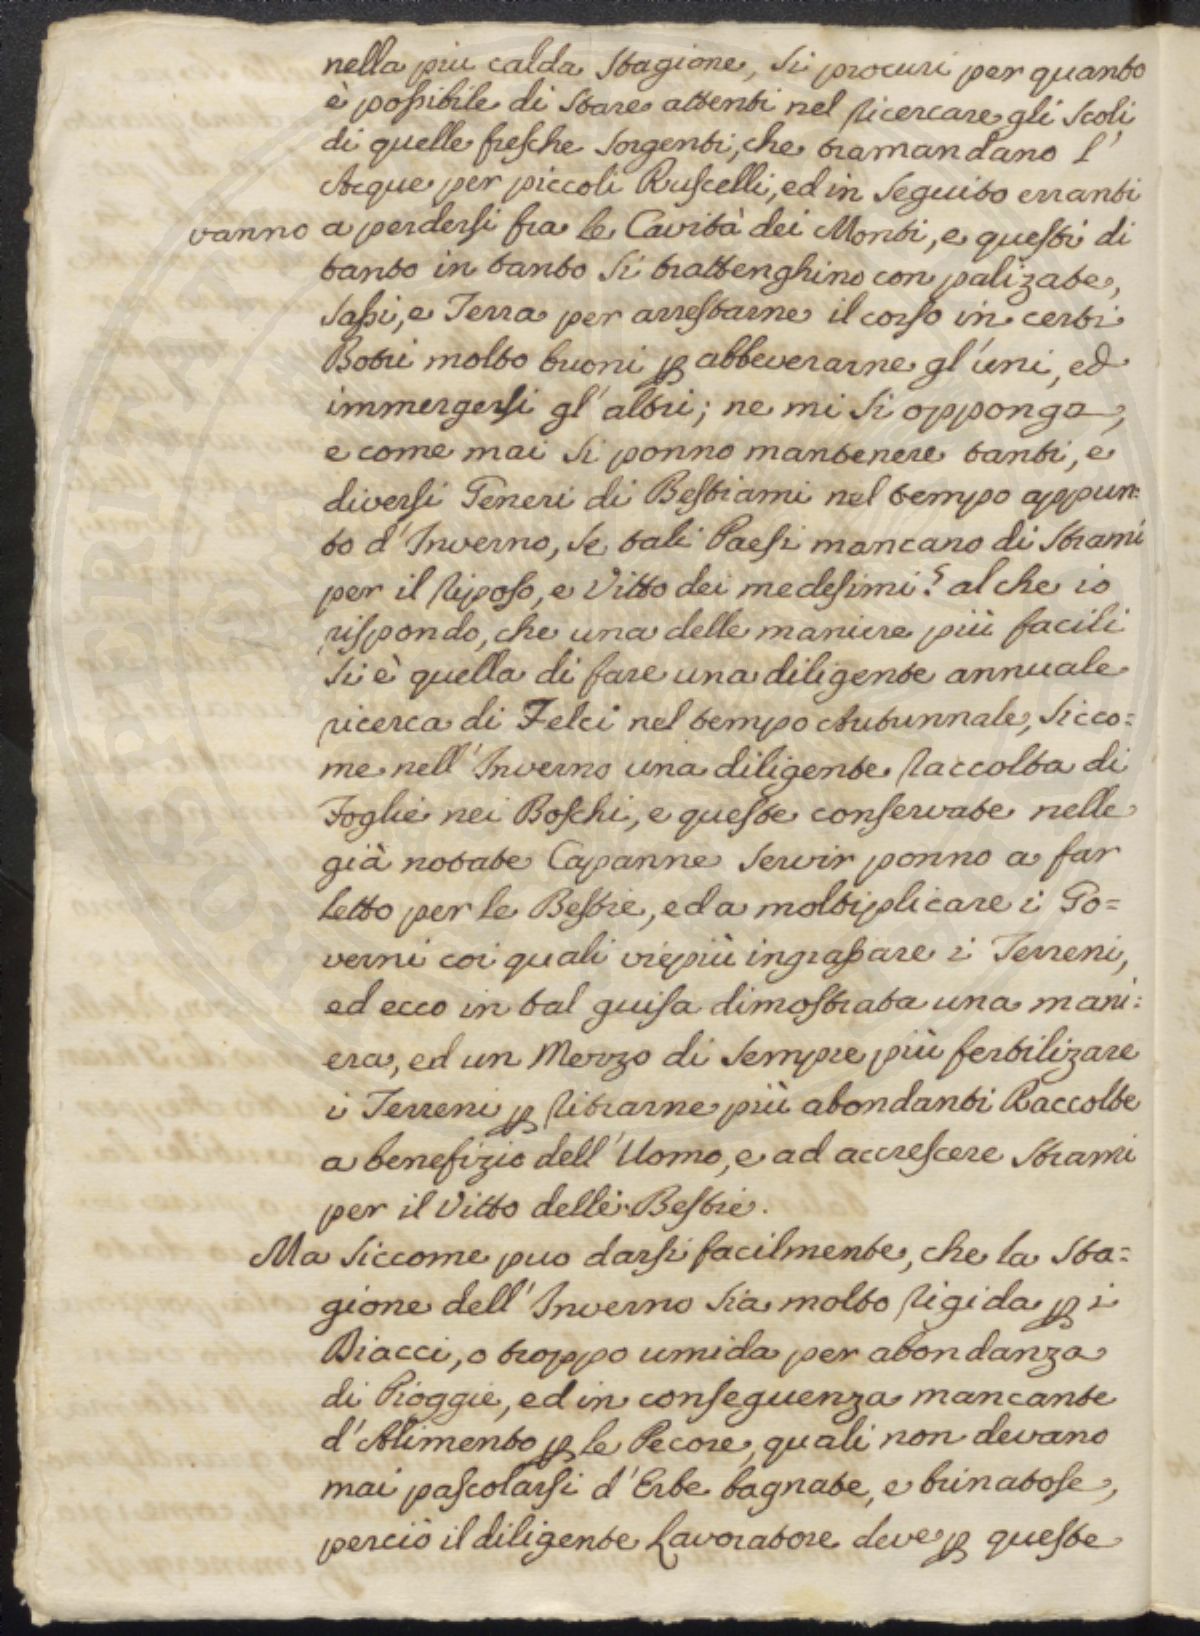 nella piu calda Stagione, si procuri per quanto
è possibile di stare attenti nel ricercare gli scoli
di quelle fresche sorgenti, che tramandano l'
Acque per piccoli Ruscelli, ed in seguito erranti
vanno a perdersi fra le Cavità dei Monti, e questi di
tanto in tanto si trattenghino con palizate,
sassi, e Terra per arrestarne il corso in certi
Botri molto buoni ꝑ abbeverarne gl'uni, ed
immergersi gl'altri; ne mi si opponga,
e come mai si ponno mantenere tanti, e
diversi Generi di Bestiami nel tempo appun:
to d'Inverno, se tali Paesi mancano di strami
per il riposo, e Vitto dei medesimi? al che io
rispondo, che una delle maniere più facili
si è quella di fare una diligente annuale
ricerca di Felci nel tempo Autunnale, sicco:
me nell'Inverno una diligente raccolta di
Foglie nei Boschi, e queste conservate nelle
già notate Capanne servir ponno a far
letto per le Bestie, ed a moltiplicare i Go=
verni coi quali viepiù ingrassare i Terreni,
ed ecco in tal guisa dimostrata una mani:
era, ed un Mezzo di sempre più fertilizare
i Terreni ꝑ ritrarne più abondanti Raccolte
a benefizio dell'Uomo, e ad accrescere strami
per il Vitto delle Bestie.
Ma siccome puo darsi facilmente, che la Sta:
gione dell'Inverno sia molto rigida ꝑ i
Diacci, o troppo umida per abondanza
di Pioggie, ed in conseguenza mancante
d'Alimento ꝑ le Pecore, quali non devano
mai pascolarsi d'Erbe bagnate, e brinatose,
perciò il diligente Lavoratore deve ꝑ queste